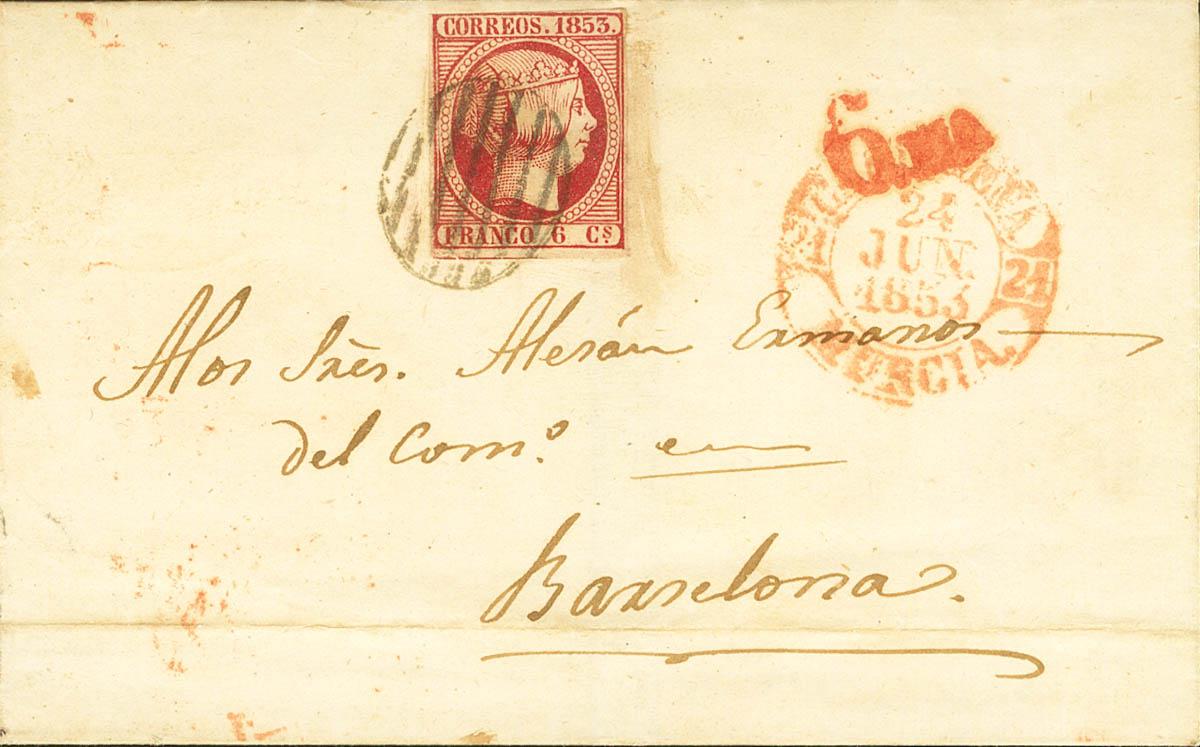 CORREOS. 1853.
FRANCO 6 Cs
6
24
JUN.
1853
24
MURCIA.
Alos Sres. Alesán Ermanos
del Como. en
Barselona.